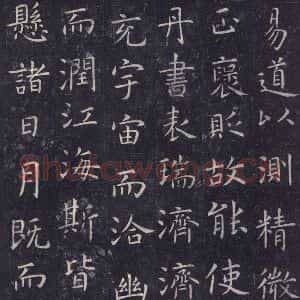 易道以測精微
正襃貶故能使
丹書表瑞濟濟
充宇宙而洽幽
而潤江海斯皆
懸諸日月既而
Shufawang.Cn